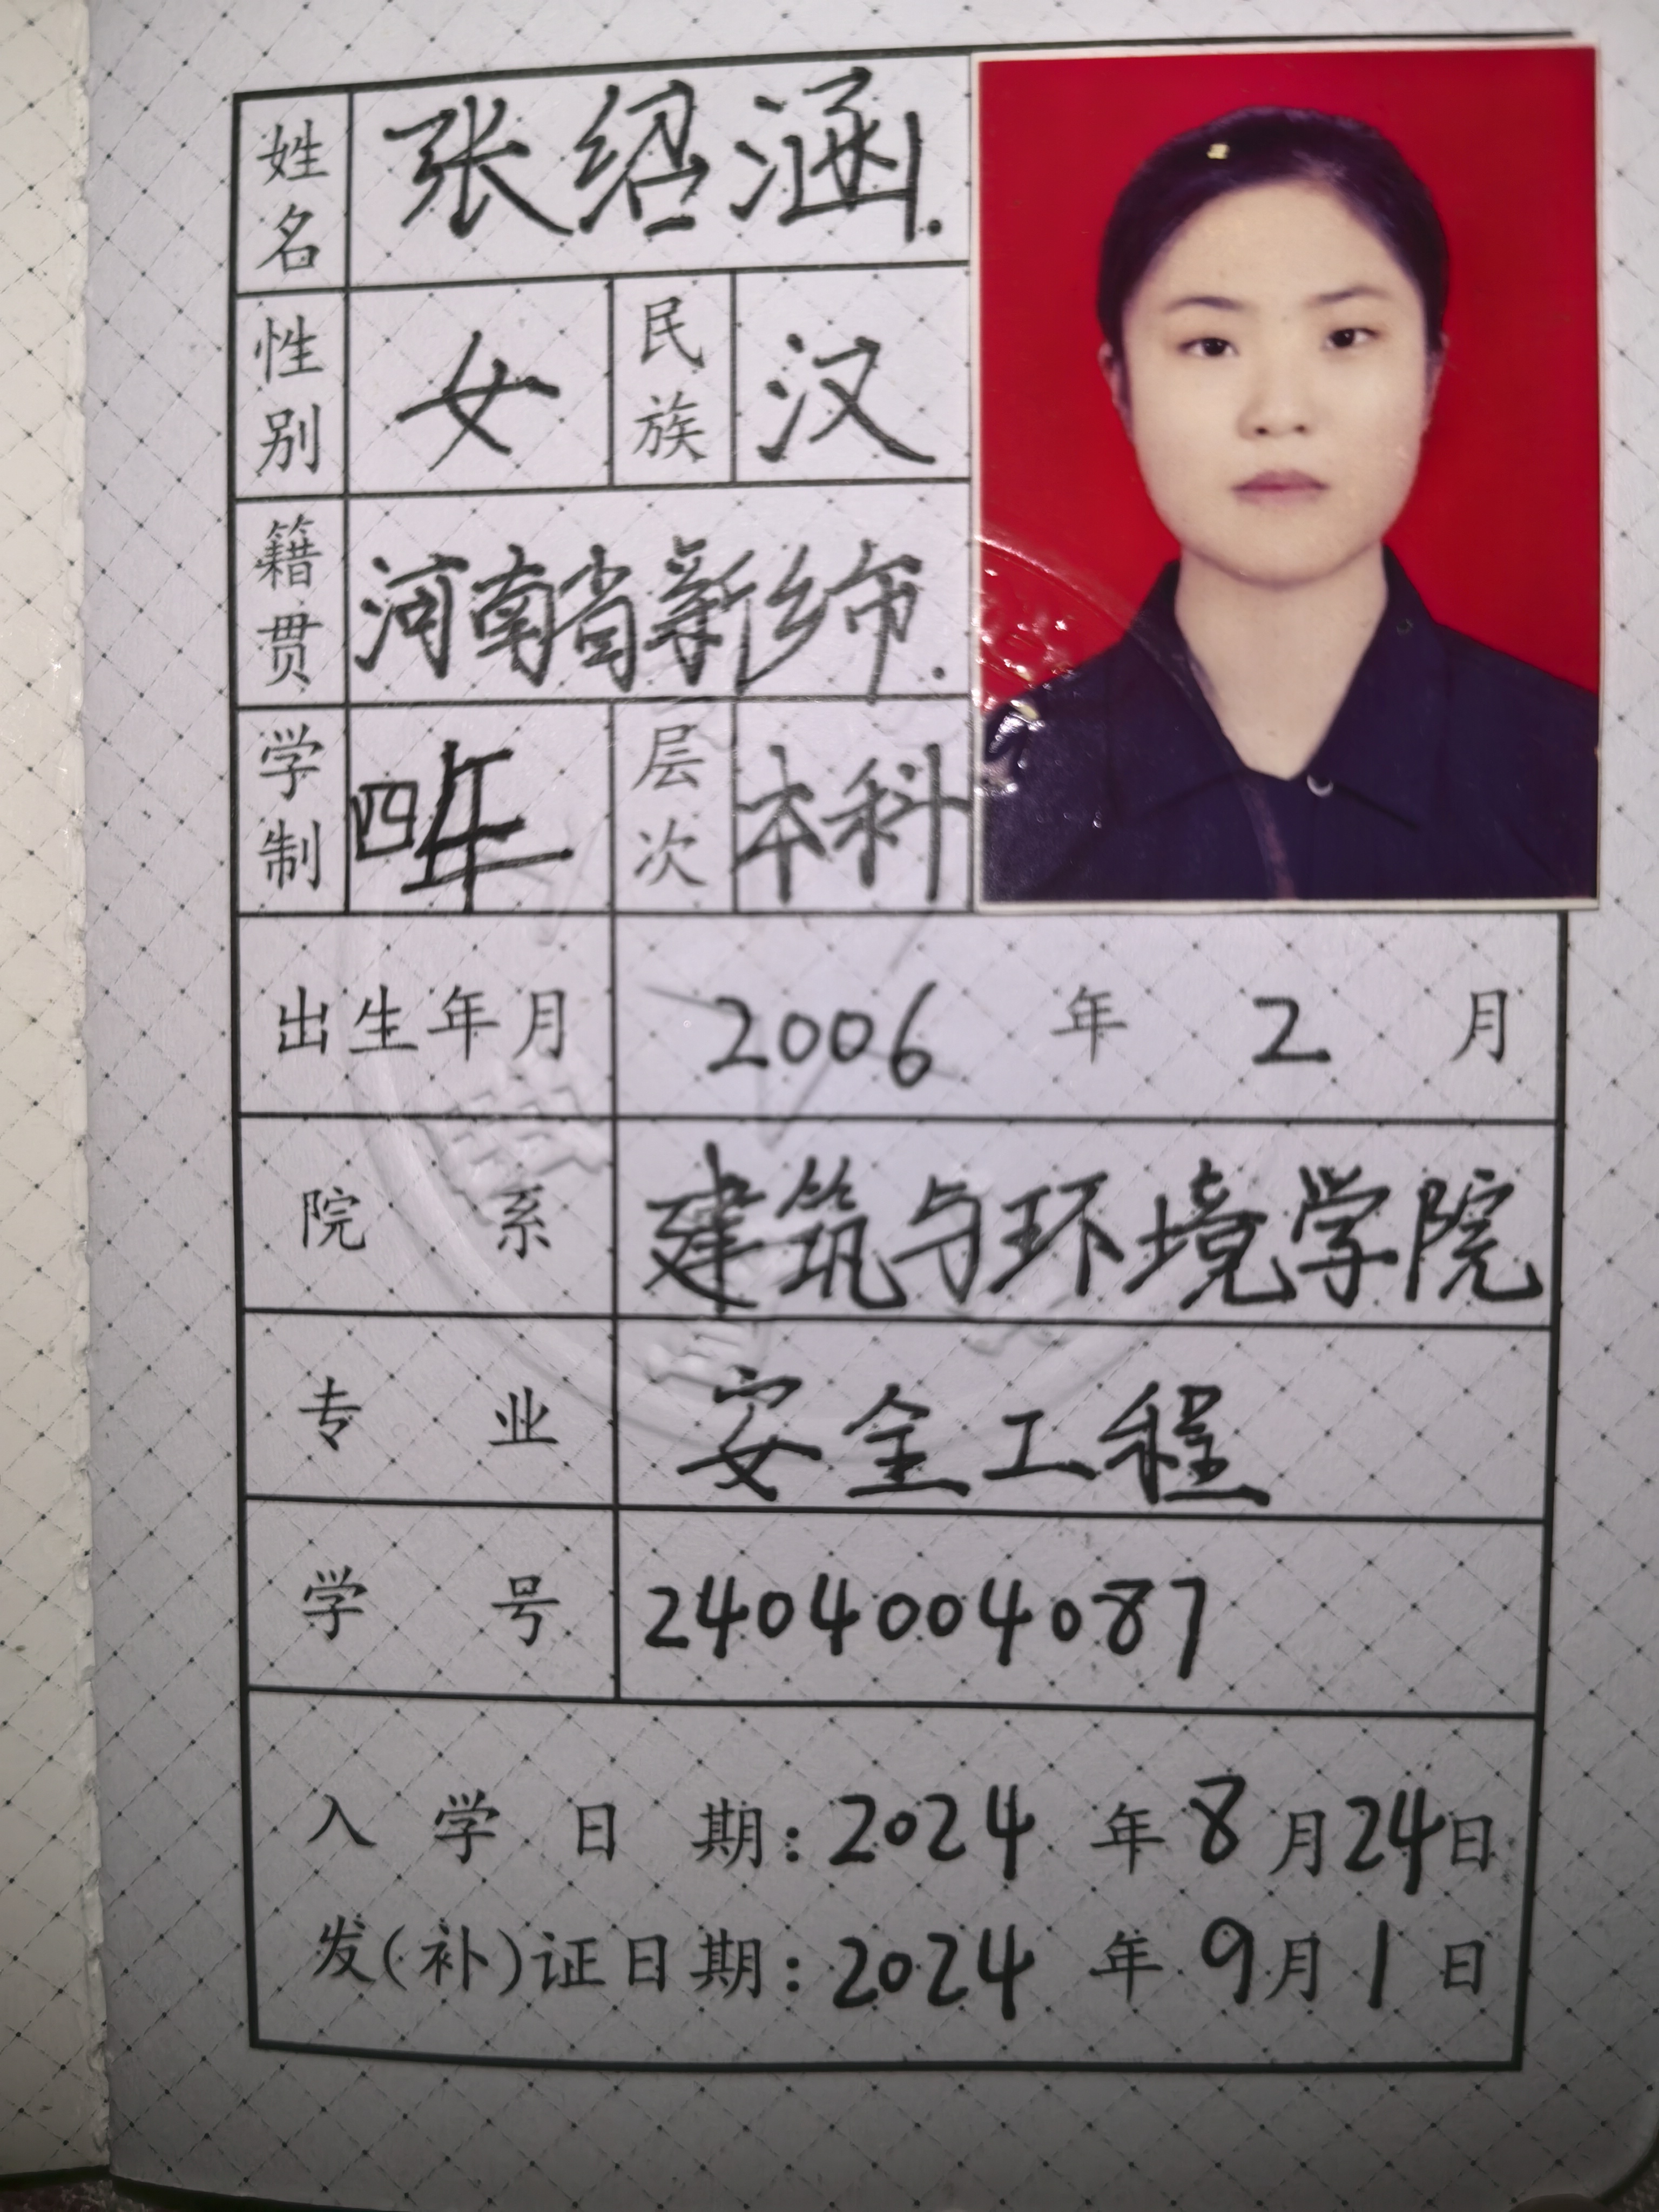 姓名 张绍涵.
性别 女 民族 汉
籍贯 河南省新乡市.
学制 四年 层次 本科
出生年月 2006 年 2 月
院系 建筑与环境学院
专业 安全工程
学号 2404004087
入学日期:2024 年 8 月 24 日
发(补)证日期:2024 年 9 月 1 日